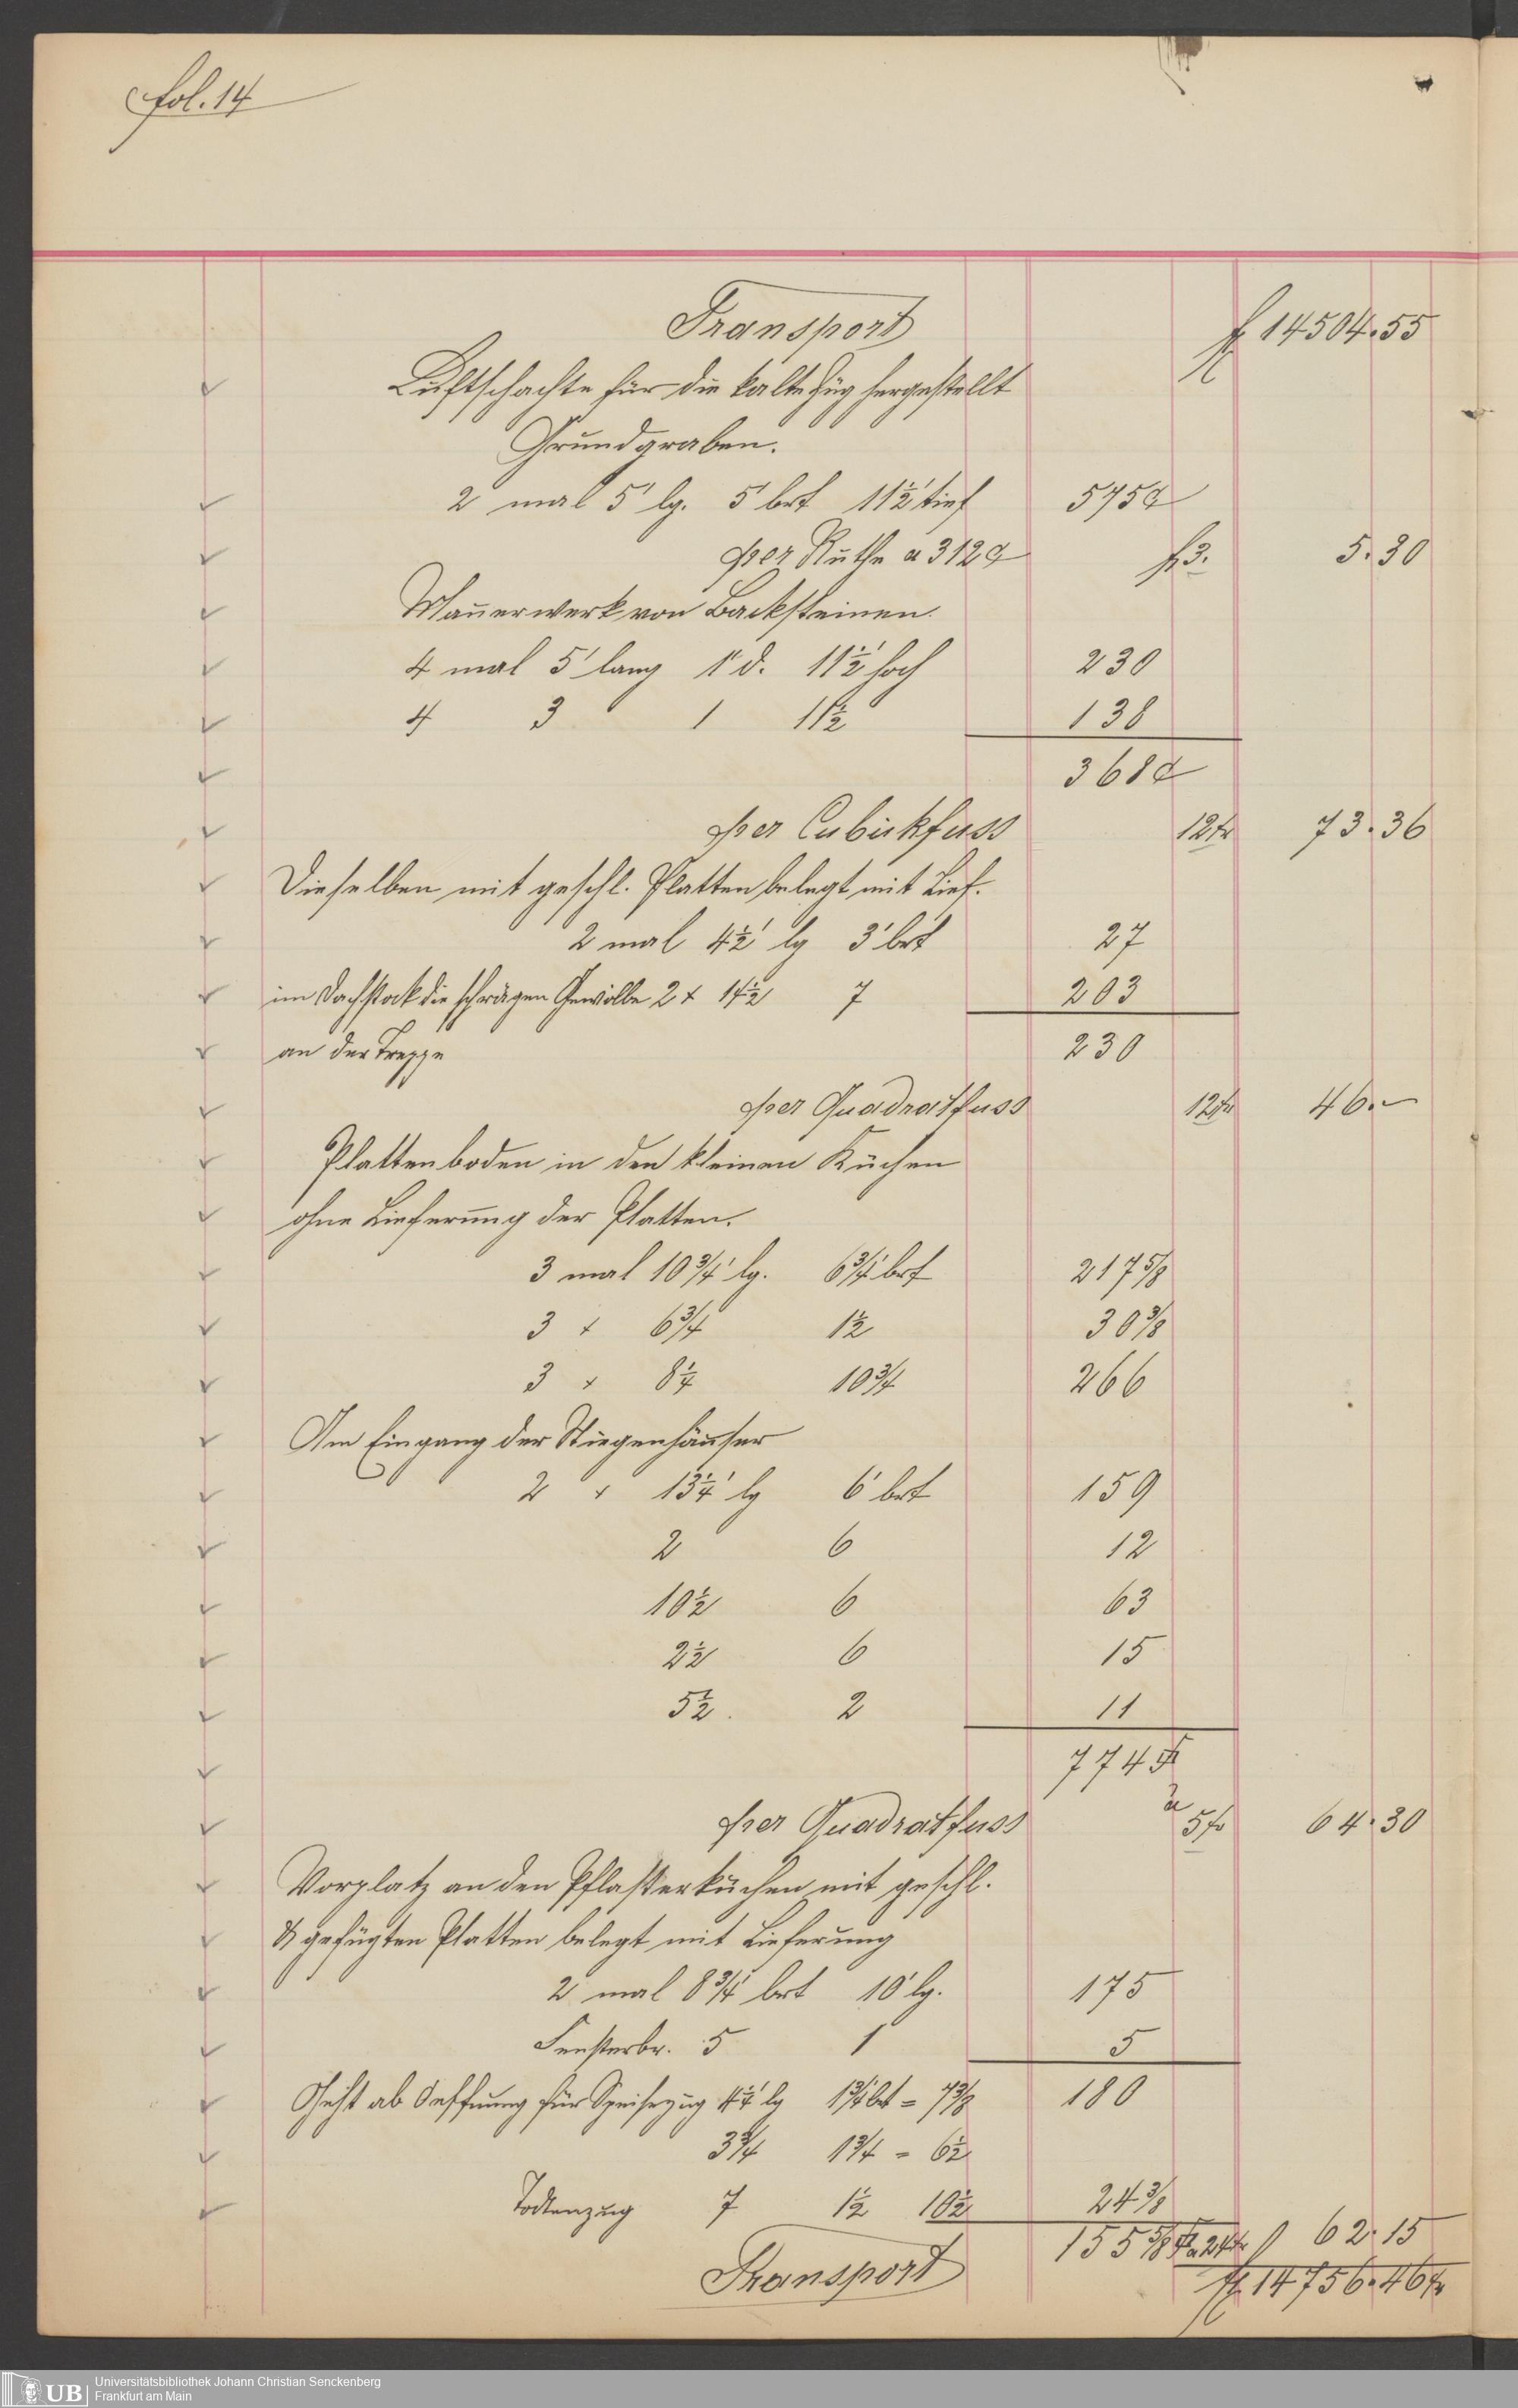 fol. 14
Transport f 14504.55
Luftschachte für die kalte Züg hergestellt
Grundgraben.
2 mal 5' lg. 5' brt 11½' tief 575 c
per Ruthe a 312 c f 3. 5.30
Mauerwerk von Backsteinen.
4 mal 5' lang 1' d. 11½' hoch 230
4 3 1 11½ 138
368 c
per Cubickfuss 12 kr 73.36
Dieselben mit geschl. Platten belegt mit Lief.
2 mal 4½' lg 3' brt 27
im Dachstock die schrägen Gewölbe 2 x 14½ 7 203
an der Treppe 230
per Quadratfuss 12 kr 46.—
Plattenboden in den kleinen Küchen
ohne Lieferung der Platten.
3 mal 10¾' lg. 6¾' brt 217⅝
3 x 6¾ 1½ 30⅜
3 x 8¼ 10¾ 266
Am Eingang der Stiegenhäuser
2 x 13¼' lg 6' brt 159
2 6 12
10½ 6 63
2½ 6 15
5½ 2 11
774
per Quadratfuss a 5 kr 64.30
Vorplatz an den Pflasterküchen mit geschl.
& gefügten Platten belegt mit Lieferung
2 mal 8¾' brt 10' lg. 175
Fensterbr. 5 1 5
Geht ab Oeffnung für Speisezug 4¼' lg 1¾' brt = 7⅜ 180
3¾ 1¾ = 6½
Todtenzug 7 1½ 10½ 24⅜
155⅝ a 24 kr 62.15
Transport f 14756.46 kr
UB Universitätsbibliothek Johann Christian Senckenberg
Frankfurt am Main